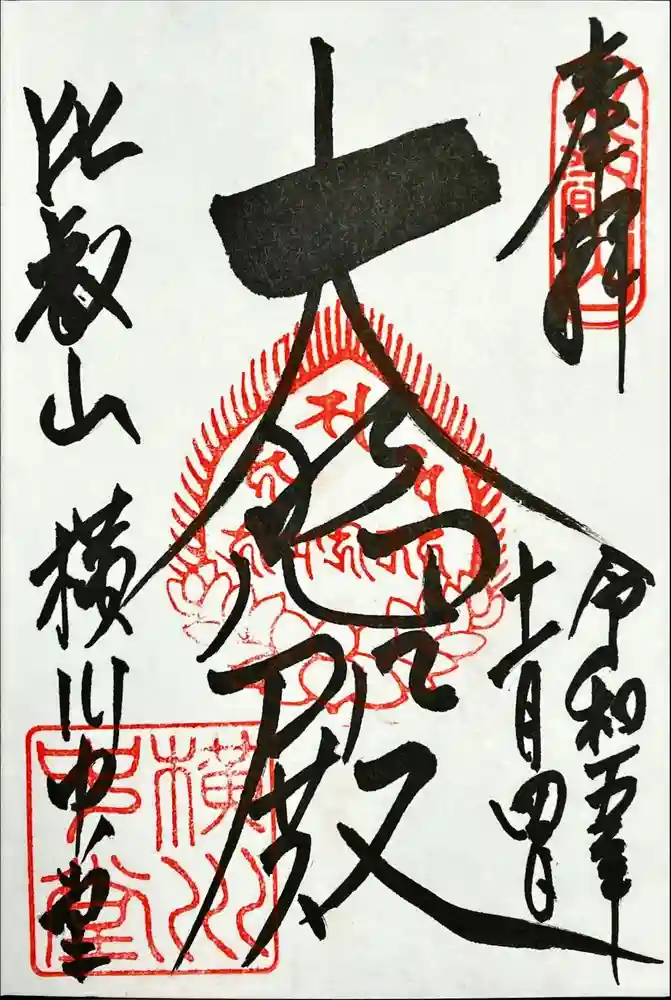 奉拝
令和五年
十一月四日
大悲殿
比叡山 横川中堂
横川
中堂